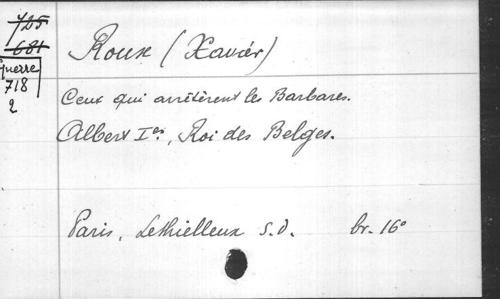 725
681
Guerre
718
2
Roux (Xavier)
Ceux qui arrêtèrent les Barbares.
Albert Ier, Roi des Belges.
Paris, Lethielleux s.d. br. 16°